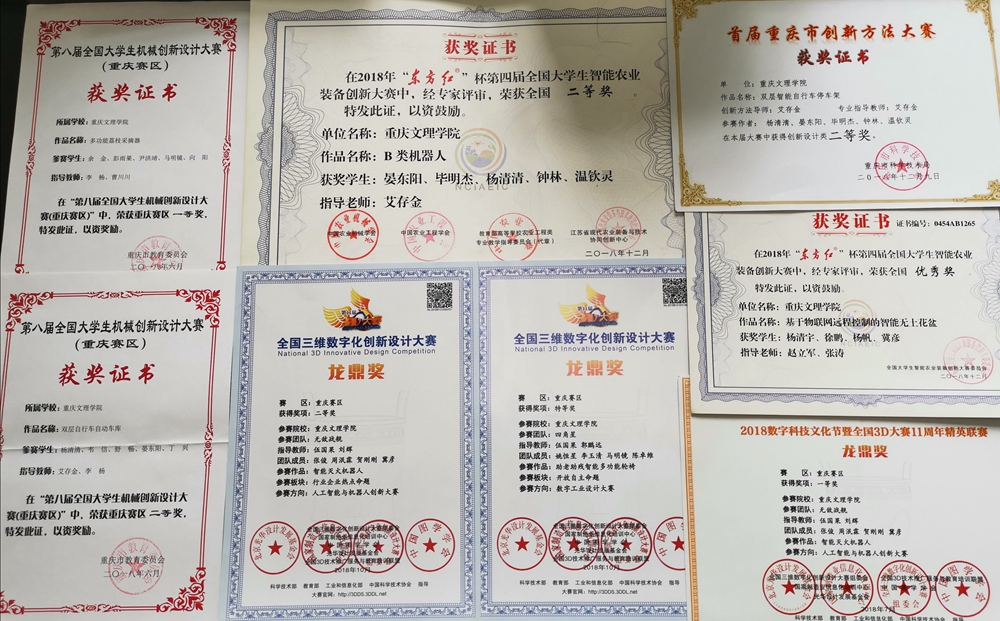 第八届全国大学生机械创新设计大赛
（重庆赛区）
获奖证书
所属学校：重庆文理学院
作品名称：多功能荔枝采摘器
参赛学生：余 金、彭雨果、尹洪靖、马明镜、向 阳
指导教师：李 杨、曹川川
在“第八届全国大学生机械创新设计大
赛(重庆赛区)”中，荣获重庆赛区 一等奖，
特发此证，以资奖励。
重庆市教育委员会
二〇一八年六月
获奖证书
在2018年“东方红®”杯第四届全国大学生智能农业
装备创新大赛中，经专家评审，荣获全国 二等奖。
特发此证，以资鼓励。
单位名称：重庆文理学院
作品名称：B 类机器人
获奖学生：晏东阳、毕明杰、杨清清、钟林、温钦灵
指导老师：艾存金
NCIAEIC
中国农业机械学会
中国农业工程学会
教育部高等学校农业工程类
专业教学指导委员会（代章）
江苏省现代农业装备与技术
协同创新中心
二〇一八年十二月
首届重庆市创新方法大赛
获奖证书
单 位：重庆文理学院
作品名称：双层智能自行车停车架
创新方法导师：艾存金 专业指导教师：艾存金
参赛作者： 杨清清、晏东阳、毕明杰、钟林、温钦灵
在本届大赛中获得创新设计类二等奖。
重庆市科学技术局
二〇一八年十二月九日
获奖证书
证书编号：0454AB1265
在2018年“东方红®”杯第四届全国大学生智能农业
装备创新大赛中，经专家评审，荣获全国 优秀奖。
特发此证，以资鼓励。
单位名称：重庆文理学院
作品名称：基于物联网远程控制的智能无土花盆
获奖学生：杨清宇、徐鹏、杨帆、冀彦
指导老师：赵立军、张涛
全国大学生智能农业装备创新大赛委员会
二〇一八年十二月
第八届全国大学生机械创新设计大赛
（重庆赛区）
获奖证书
所属学校：重庆文理学院
作品名称：双层自行车自动车库
参赛学生：杨清清、韦 信、舒 畅、晏东阳、丁 列
指导教师：艾存金、李 杨
在“第八届全国大学生机械创新设计大
赛(重庆赛区)”中，荣获重庆赛区 二等奖，
特发此证，以资奖励。
重庆市教育委员会
二〇一八年六月
全国三维数字化创新设计大赛
National 3D Innovative Design Competition
龙鼎奖
赛 区：重庆赛区
获得奖项：二等奖
参赛院校：重庆文理学院
参赛团队：无敌战舰
指导教师：伍国果 刘辉
团队成员：张俊 周汛霖 贺刚刚 冀彦
参赛作品：智能灭火机器人
参赛板块：行业企业热点命题
参赛方向：人工智能与机器人创新大赛
2018年10月
科学技术部 教育部 工业和信息化部 中国科学技术协会 指导
大赛官网：http://3DDS.3DDL.net
全国三维数字化创新设计大赛
National 3D Innovative Design Competition
龙鼎奖
赛 区：重庆赛区
获得奖项：特等奖
参赛院校：重庆文理学院
参赛团队：四角星
指导教师：伍国果 郭鹏远
团队成员：姚恒星 李玉清 马明镜 陈卓维
参赛作品：助老助残智能多功能轮椅
参赛板块：开放自主命题
参赛方向：数字工业设计大赛
2018年10月
科学技术部 教育部 工业和信息化部 中国科学技术协会 指导
大赛官网：http://3DDS.3DDL.net
2018数字科技文化节暨全国3D大赛11周年精英联赛
龙鼎奖
赛 区：重庆赛区
获得奖项：一等奖
参赛院校：重庆文理学院
参赛团队：无敌战舰
指导教师：伍国果 刘辉
团队成员：张俊 周汛霖 贺刚刚 冀彦
参赛作品：智能灭火机器人
参赛方向：人工智能与机器人创新大赛
2018年7月
科学技术部 教育部 工业和信息化部 中国科学技术协会 指导